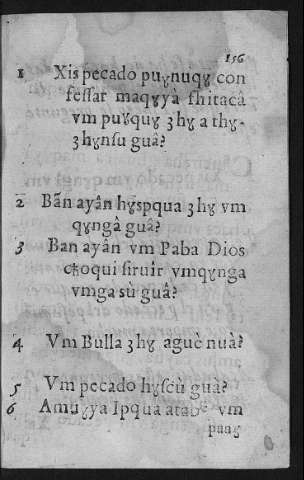 156
1 Xis pecado puɣnuqɣ con
fessar maqɣyà shitacâ
vm puɣquɣ ȝhɣ a thɣ-
ȝhɣnsu guâ?
2 Ban ayân hɣspqua ȝhɣ vm
qɣngâ guâ?
3 Ban ayân vm Paba Dios
choqui siruir vmqɣnga
vmga sù guâ?
4 Vm Bulla ȝhɣ aguè nuà?
5 Vm pecado hɣscù guâ?
6 Amuɣya Ipqua atabe vm
paaɣ